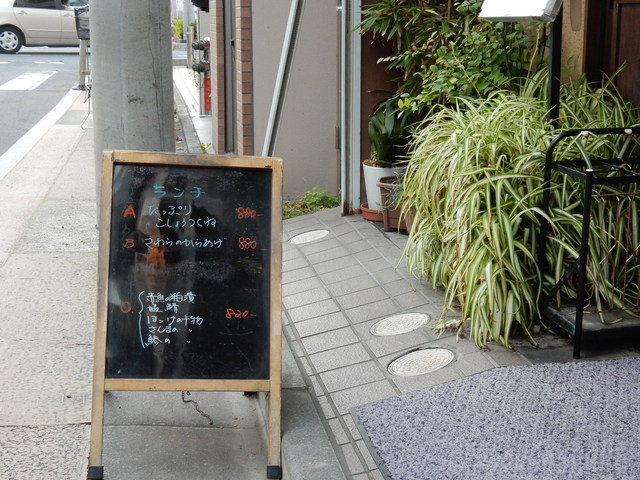 ランチ
A たっぷり 880-
こしょうつくね
B さわらのからあげ 880
C. 赤魚の粕漬 820-
塩鯖
ほっけの干物
さんまの 〃
鯵の 〃